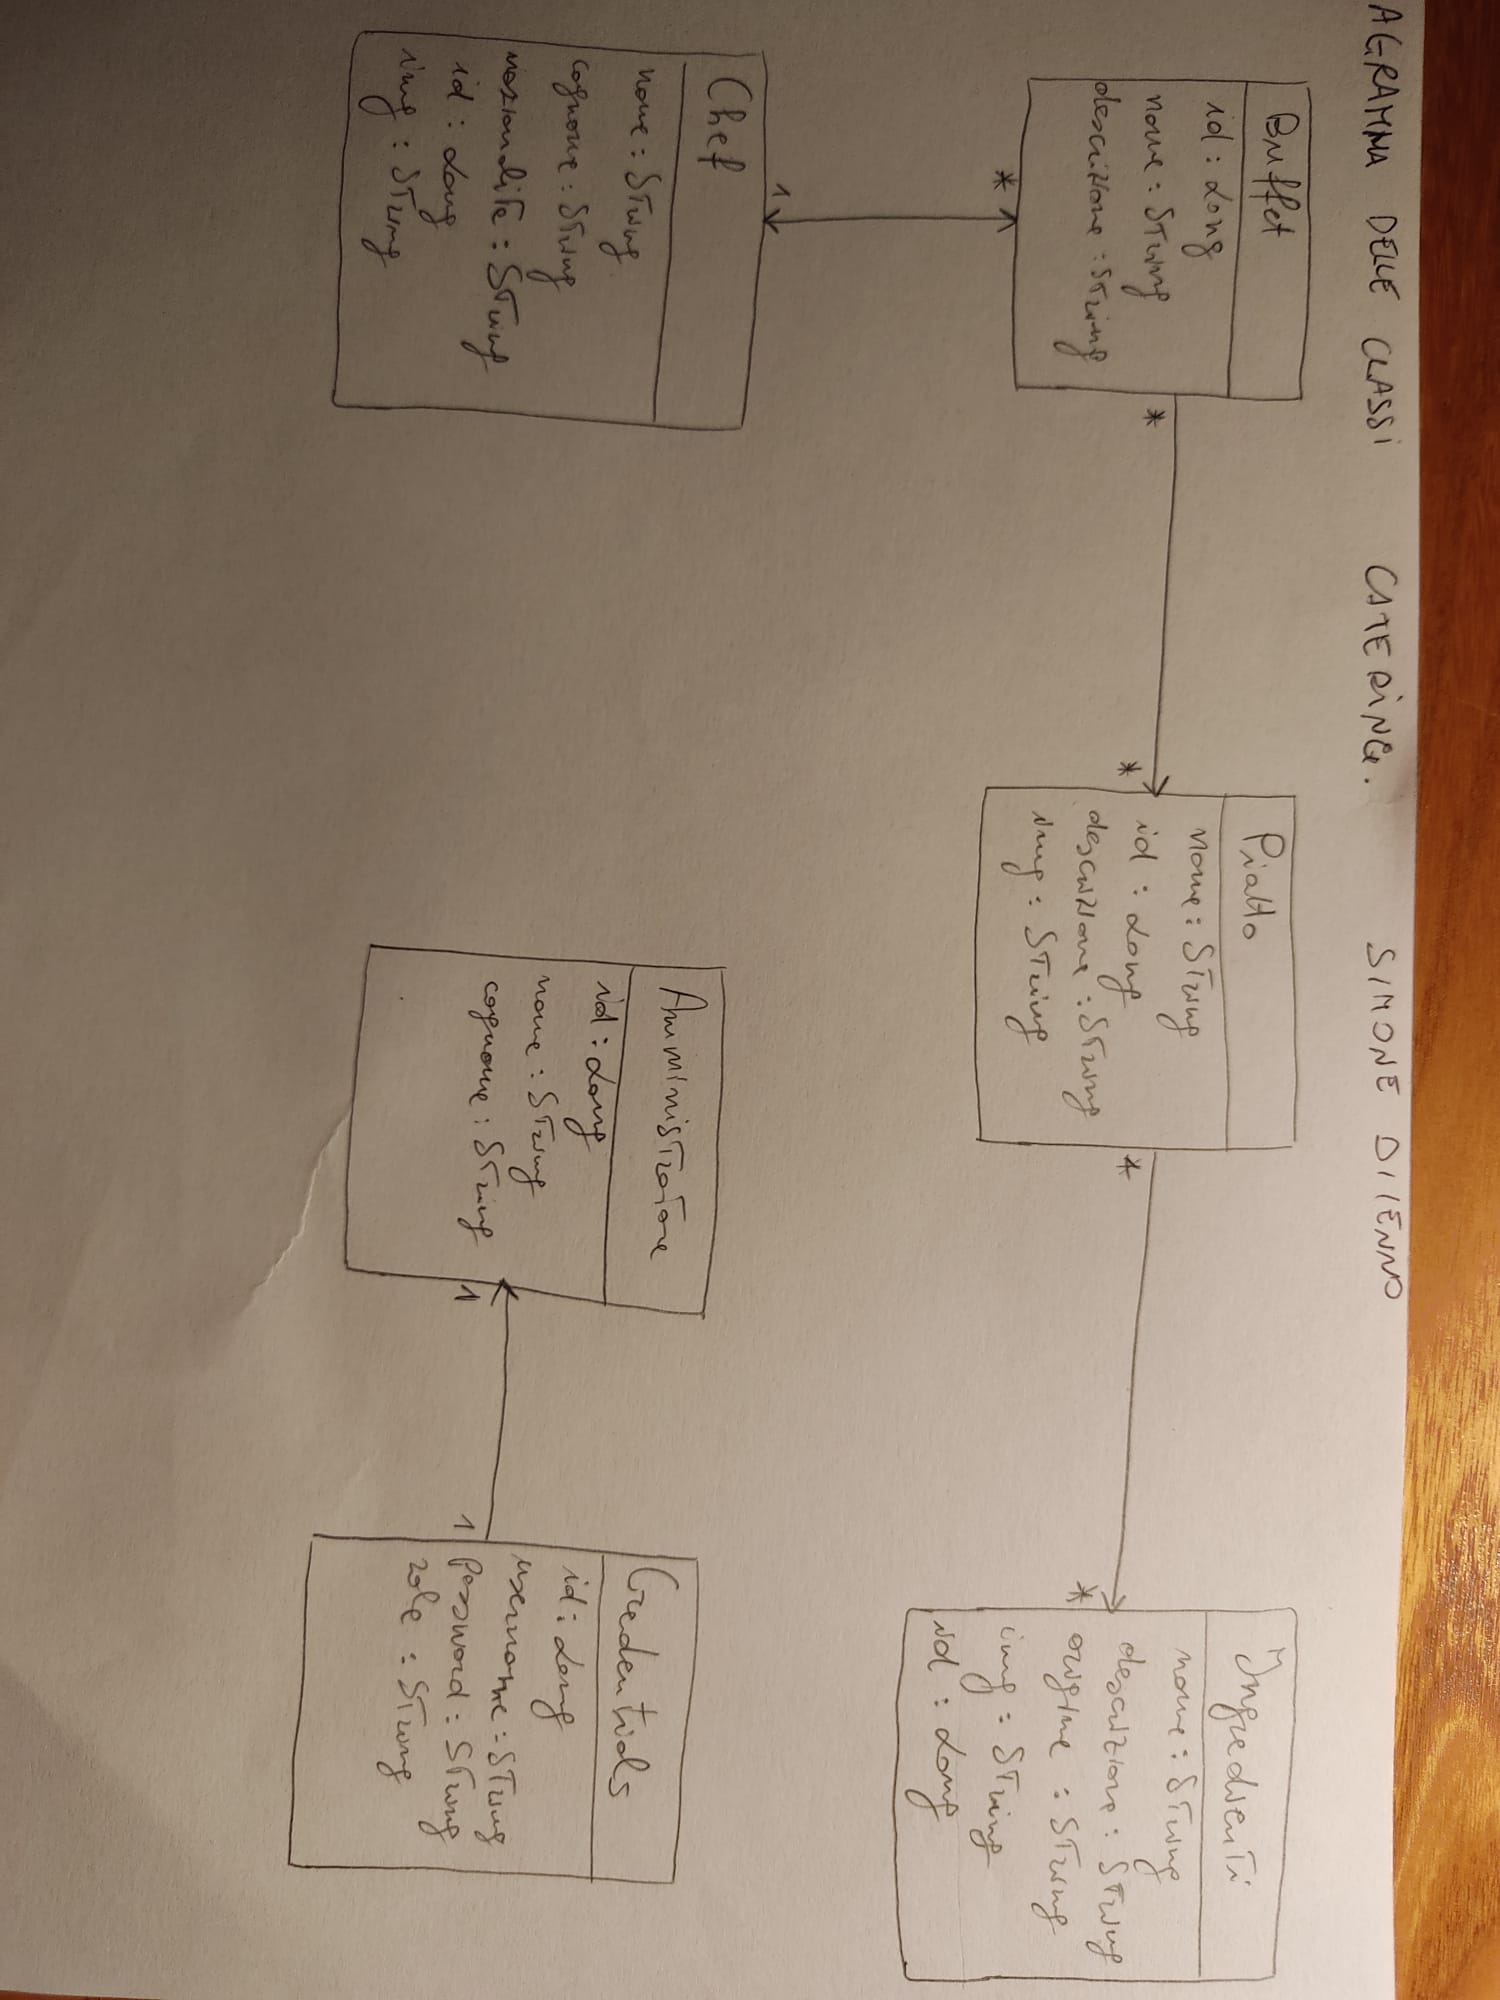 AGRAMMA DELLE CLASSI CATERING. SIMONE DI IENNO
Buffet
id: Long
nome: String
descrizione: String
*
*
Piatto
nome: String
id: Long
descrizione: String
img: String
*
*
Ingredienti
nome: String
descrizione: String
origine: String
img: String
id: Long
*
1
Chef
nome: String
cognome: String
nazionalita: String
id: Long
img: String
Amministratore
id: Long
nome: String
cognome: String
1
1
Credentials
id: Long
username: String
password: String
role: String